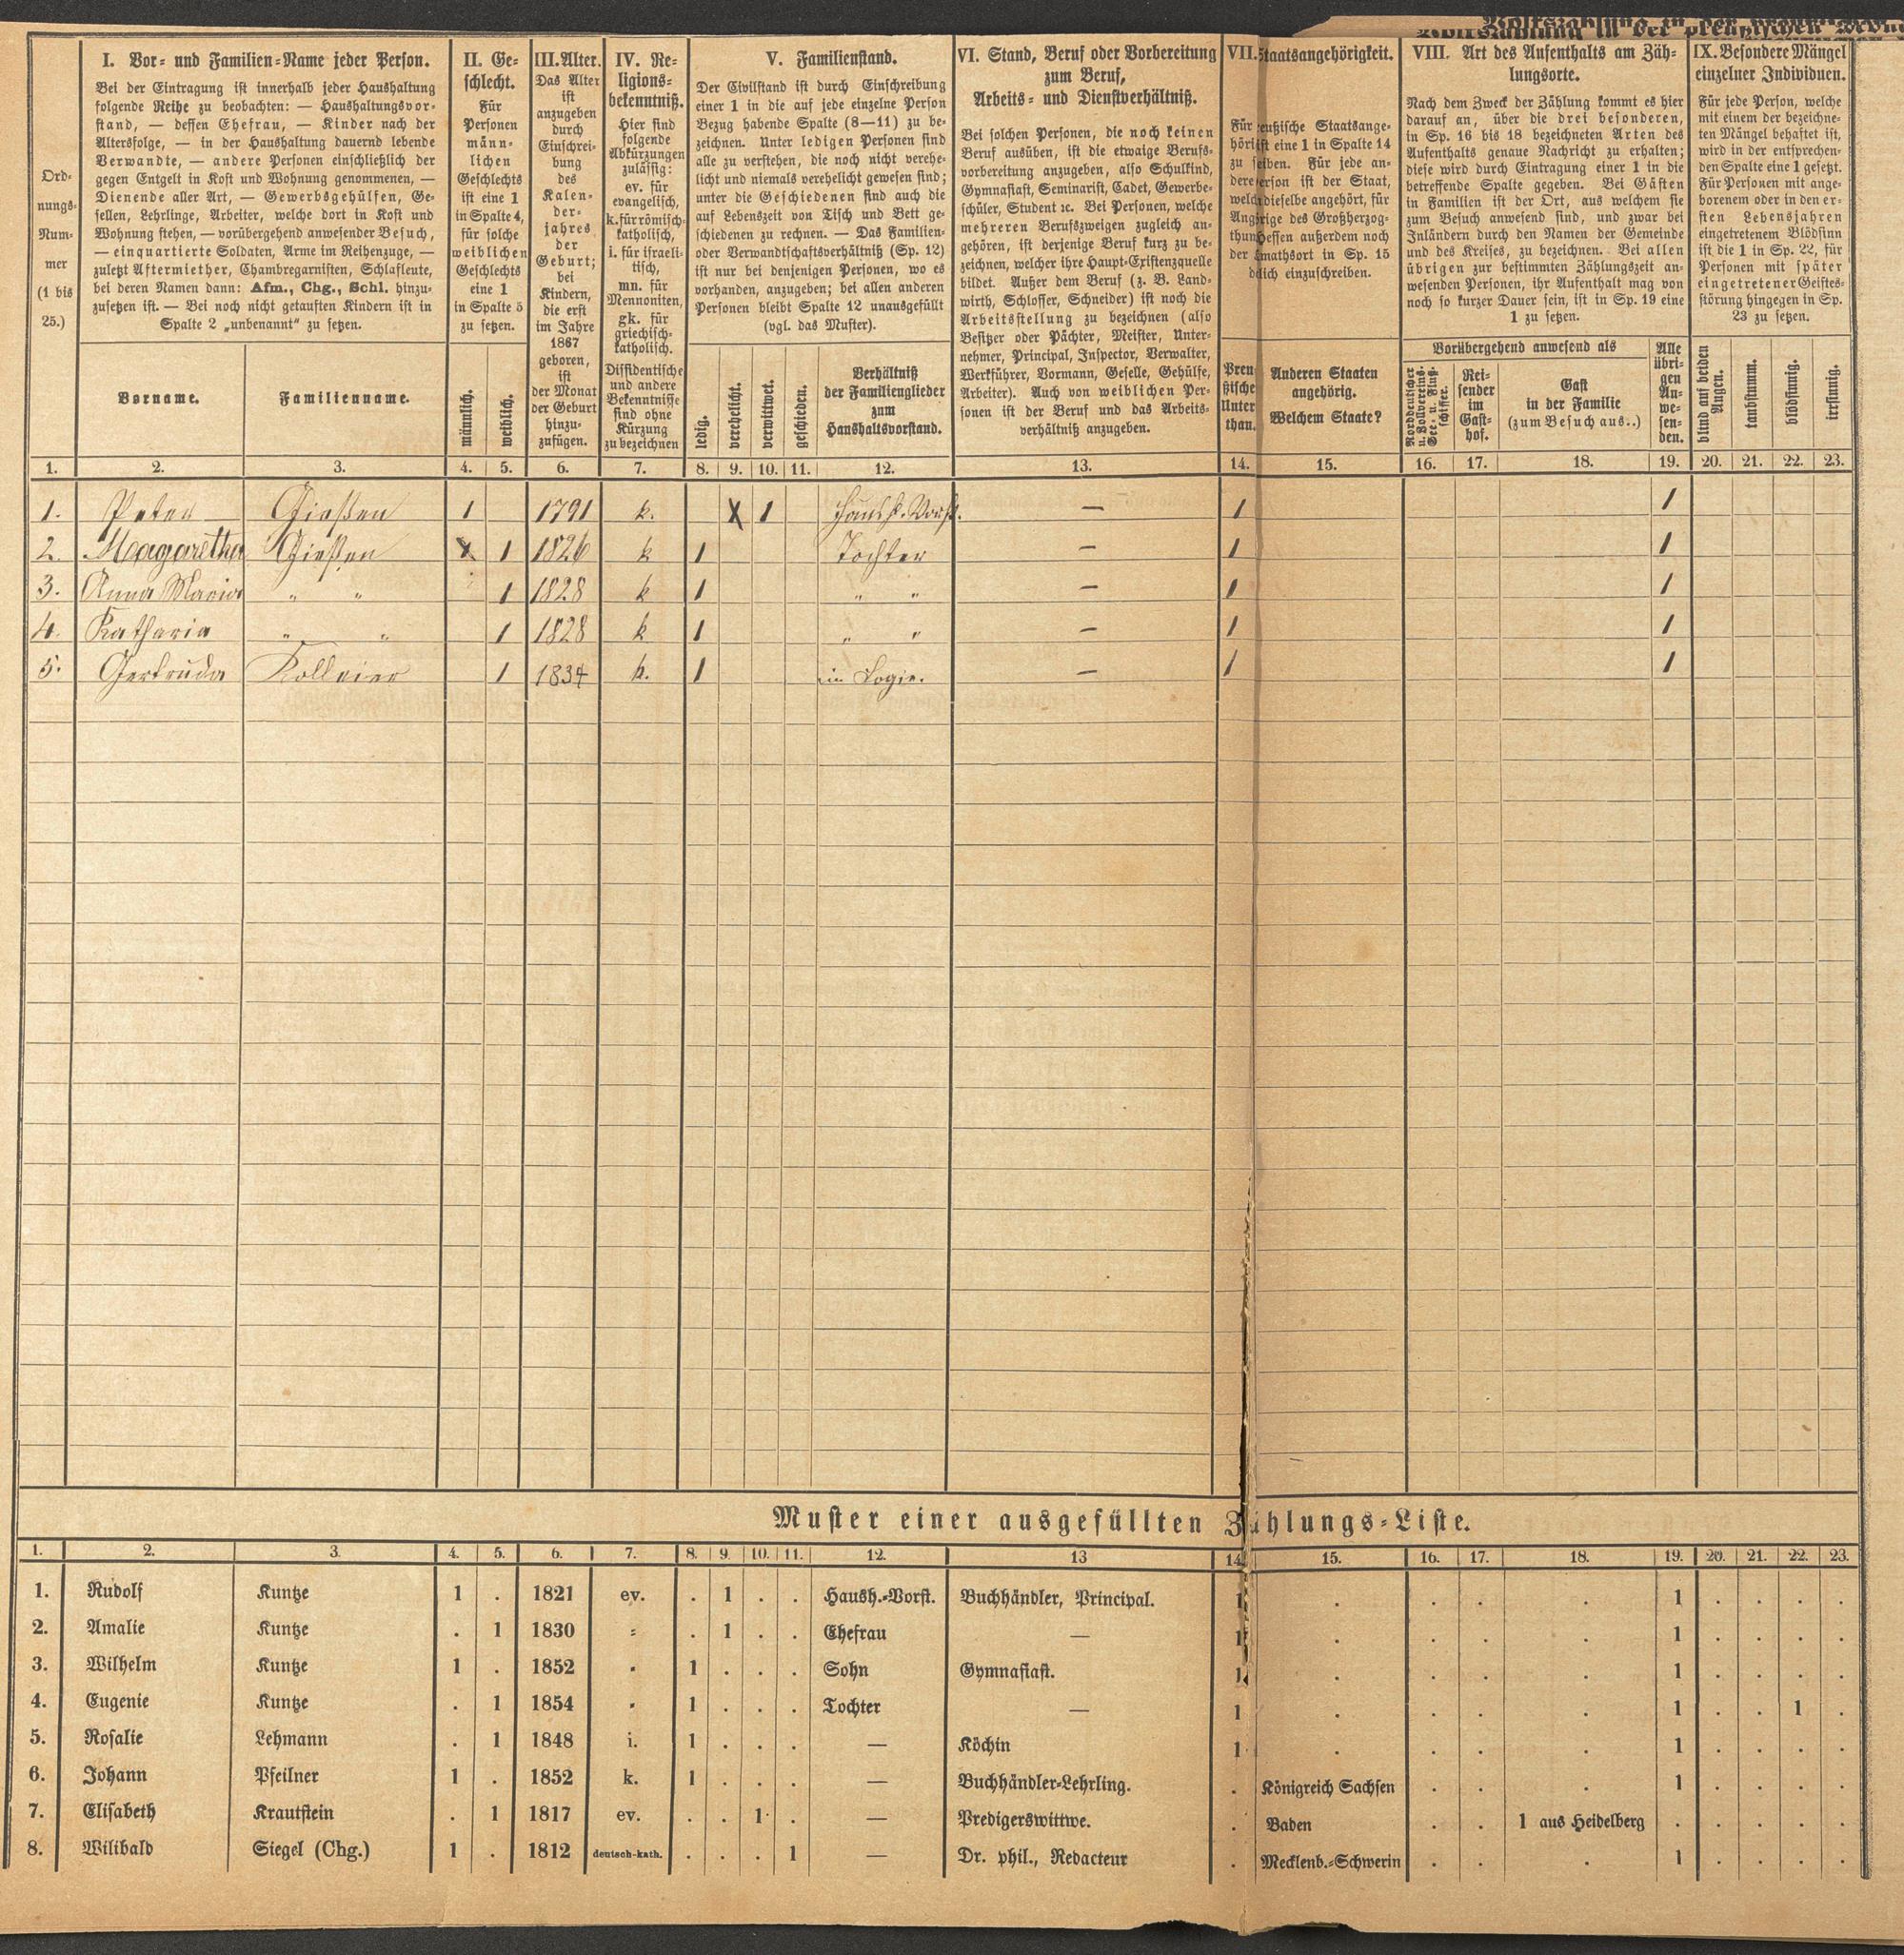 Volkszählung in der preußischen
I. Vor- und Familien-Name jeder Person.
Bei der Eintragung ist innerhalb jeder Haushaltung
folgende Reihe zu beobachten: — Haushaltungsvor-
stand, — dessen Ehefrau, — Kinder nach der
Altersfolge, — in der Haushaltung dauernd lebende
Verwandte, — andere Personen einschließlich der
gegen Entgelt in Kost und Wohnung genommenen, —
Dienende aller Art, — Gewerbsgehülfen, Ge-
sellen, Lehrlinge, Arbeiter, welche dort in Kost und
Wohnung stehen, — vorübergehend anwesender Besuch,
— einquartierte Soldaten, Arme im Reihenzuge, —
zuletzt Aftermiether, Chambregarnisten, Schlafleute,
bei deren Namen dann: Afm., Chg., Schl. hinzu-
zusetzen ist. — Bei noch nicht getauften Kindern ist in
Spalte 2 „unbenannt“ zu setzen.
Ord-
nungs-
Num-
mer
(1 bis
25.)
Vorname.
Familienname.
II. Ge-
schlecht.
Für
Personen
männ-
lichen
Geschlechts
ist eine 1
in Spalte 4,
für solche
weiblichen
Geschlechts
eine 1
in Spalte 5
zu setzen.
männlich.
weiblich.
III. Alter.
Das Alter
ist
anzugeben
durch
Einschrei-
bung
des
Kalen-
der-
jahres
der
Geburt;
bei
Kindern,
die erst
im Jahre
1867
geboren,
ist
der Monat
der Geburt
hinzu-
zufügen.
IV. Re-
ligions-
bekenntniß.
Hier sind
folgende
Abkürzungen
zulässig:
ev. für
evangelisch,
k. für römisch-
katholisch,
i. für israeli-
tisch,
mn. für
Mennoniten,
gk. für
griechisch-
katholisch.
Dissidentische
und andere
Bekenntnisse
sind ohne
Kürzung
zu bezeichnen
V. Familienstand.
Der Civilstand ist durch Einschreibung
einer 1 in die auf jede einzelne Person
Bezug habende Spalte (8—11) zu be-
zeichnen. Unter ledigen Personen sind
alle zu verstehen, die noch nicht verehe-
licht und niemals verehelicht gewesen sind;
unter die Geschiedenen sind auch die
auf Lebenszeit von Tisch und Bett ge-
schiedenen zu rechnen. — Das Familien-
oder Verwandtschaftsverhältniß (Sp. 12)
ist nur bei denjenigen Personen, wo es
vorhanden, anzugeben; bei allen anderen
Personen bleibt Spalte 12 unausgefüllt
(vgl. das Muster).
ledig.
verehelicht.
verwittwet.
geschieden.
Verhältniß
der Familienglieder
zum
Haushaltsvorstand.
VI. Stand, Beruf oder Vorbereitung
zum Beruf,
Arbeits- und Dienstverhältniß.
Bei solchen Personen, die noch keinen
Beruf ausüben, ist die etwaige Berufs-
vorbereitung anzugeben, also Schulkind,
Gymnasiast, Seminarist, Cadet, Gewerbe-
schüler, Student ꝛc. Bei Personen, welche
mehreren Berufszweigen zugleich an-
gehören, ist derjenige Beruf kurz zu be-
zeichnen, welcher ihre Haupt-Existenzquelle
bildet. Außer dem Beruf (z. B. Land-
wirth, Schlosser, Schneider) ist noch die
Arbeitsstellung zu bezeichnen (also
Besitzer oder Pächter, Meister, Unter-
nehmer, Principal, Inspector, Verwalter,
Werkführer, Vormann, Geselle, Gehülfe,
Arbeiter). Auch von weiblichen Per-
sonen ist der Beruf und das Arbeits-
verhältniß anzugeben.
VII. Staatsangehörigkeit.
Für eußische Staatsange-
höri ist eine 1 in Spalte 14
zu seiben. Für jede an-
dere erson ist der Staat,
welch dieselbe angehört, für
Ang rige des Großherzog-
thum Hessen außerdem noch
der mathsort in Sp. 15
d lich einzuschreiben.
Preu-
ßische
Unter-
than.
Anderen Staaten
angehörig.
Welchem Staate?
VIII. Art des Aufenthalts am Zäh-
lungsorte.
Nach dem Zweck der Zählung kommt es hier
darauf an, über die drei besonderen,
in Sp. 16 bis 18 bezeichneten Arten des
Aufenthalts genaue Nachricht zu erhalten;
diese wird durch Eintragung einer 1 in die
betreffende Spalte gegeben. Bei Gästen
in Familien ist der Ort, aus welchem sie
zum Besuch anwesend sind, und zwar bei
Inländern durch den Namen der Gemeinde
und des Kreises, zu bezeichnen. Bei allen
übrigen zur bestimmten Zählungszeit an-
wesenden Personen, ihr Aufenthalt mag von
noch so kurzer Dauer sein, ist in Sp. 19 eine
1 zu setzen.
Vorübergehend anwesend als
Norddeutscher
u. Zollvereins-
See- u. Fluß-
schiffer.
Rei-
sender
im
Gast-
hof.
Gast
in der Familie
(zum Besuch aus..)
Alle
übri-
gen
An-
we-
sen-
den.
IX. Besondere Mängel
einzelner Individuen.
Für jede Person, welche
mit einem der bezeichne-
ten Mängel behaftet ist,
wird in der entsprechen-
den Spalte eine 1 gesetzt.
Für Personen mit ange-
borenem oder in den er-
sten Lebensjahren
eingetretenem Blödsinn
ist die 1 in Sp. 22, für
Personen mit später
eingetretener Geistes-
störung hingegen in Sp.
23 zu setzen.
blind auf beiden
Augen.
taubstumm.
blödsinnig.
irrsinnig.
1. 2. 3. 4. 5. 6. 7. 8. 9. 10. 11. 12. 13. 14. 15. 16. 17. 18. 19. 20. 21. 22. 23.
1. Peter Gießen 1 1791 k. X 1 Haush. Vorst. — 1 1
2. Magaretha Gießen X 1 1826 k 1 Tochter — 1 1
3. Anna Maria " " 1 1828 k 1 " " — 1 1
4. Katharia " " 1 1828 k 1 " " — 1 1
5. Gertruda 1 1834 k. 1 in Logie. — 1 1
Muster einer ausgefüllten Zählungs-Liste.
1. 2. 3. 4. 5. 6. 7. 8. 9. 10. 11. 12. 13 14 15. 16. 17. 18. 19. 20. 21. 22. 23.
1. Rudolf Kuntze 1 . 1821 ev. . 1 . . Haush.-Vorst. Buchhändler, Principal. 1 . . . . 1 . . . .
2. Amalie Kuntze . 1 1830 " . 1 . . Ehefrau — 1 . . . . 1 . . . .
3. Wilhelm Kuntze 1 . 1852 " 1 . . . Sohn Gymnasiast. 1 . . . . 1 . . . .
4. Eugenie Kuntze . 1 1854 " 1 . . . Tochter — 1 . . . . 1 . . 1 .
5. Rosalie Lehmann . 1 1848 i. 1 . . . — Köchin 1 . . . . 1 . . . .
6. Johann Pfeilner 1 . 1852 k. 1 . . . — Buchhändler-Lehrling. . Königreich Sachsen . . . 1 . . . .
7. Elisabeth Krautstein . 1 1817 ev. . . 1 . — Predigerswittwe. . Baden . . 1 aus Heidelberg . . . . .
8. Wilibald Siegel (Chg.) 1 . 1812 deutsch-kath. . . . 1 — Dr. phil., Redacteur . Mecklenb.-Schwerin . . . 1 . . . .